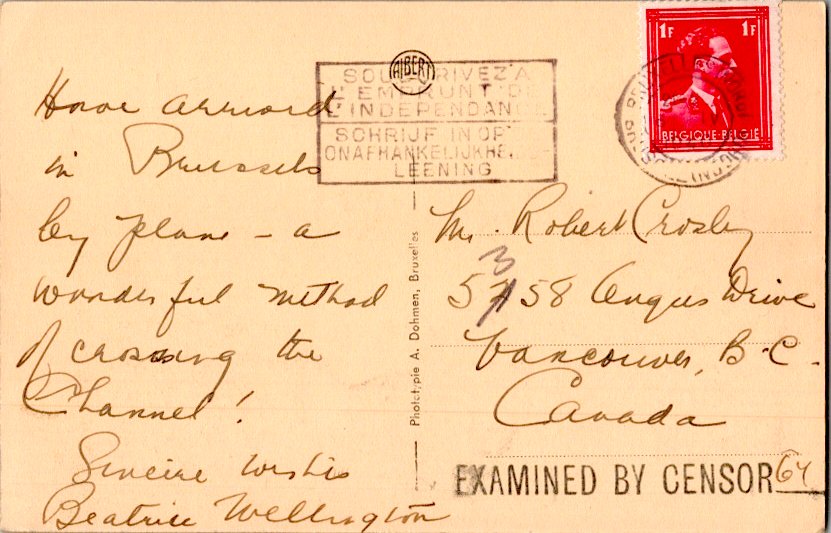 Have arrived
in Brussels
by plane - a
wonderful method
of crossing the
Channel!
Sincere wishes
Beatrice Wellington
ALBERT
SOUSCRIVEZ A
L'EMPRUNT DE
L'INDEPENDANCE
SCHRIJF IN OP
ONAFHANKELIJKHEIDS
LEENING
1F 1F
BELGIQUE-BELGIE
Phototypie A. Dohmen, Bruxelles
Mr. Robert Crosby
3
5758 Angus Drive
Vancouver, B.C.
Canada
EXAMINED BY CENSOR 64